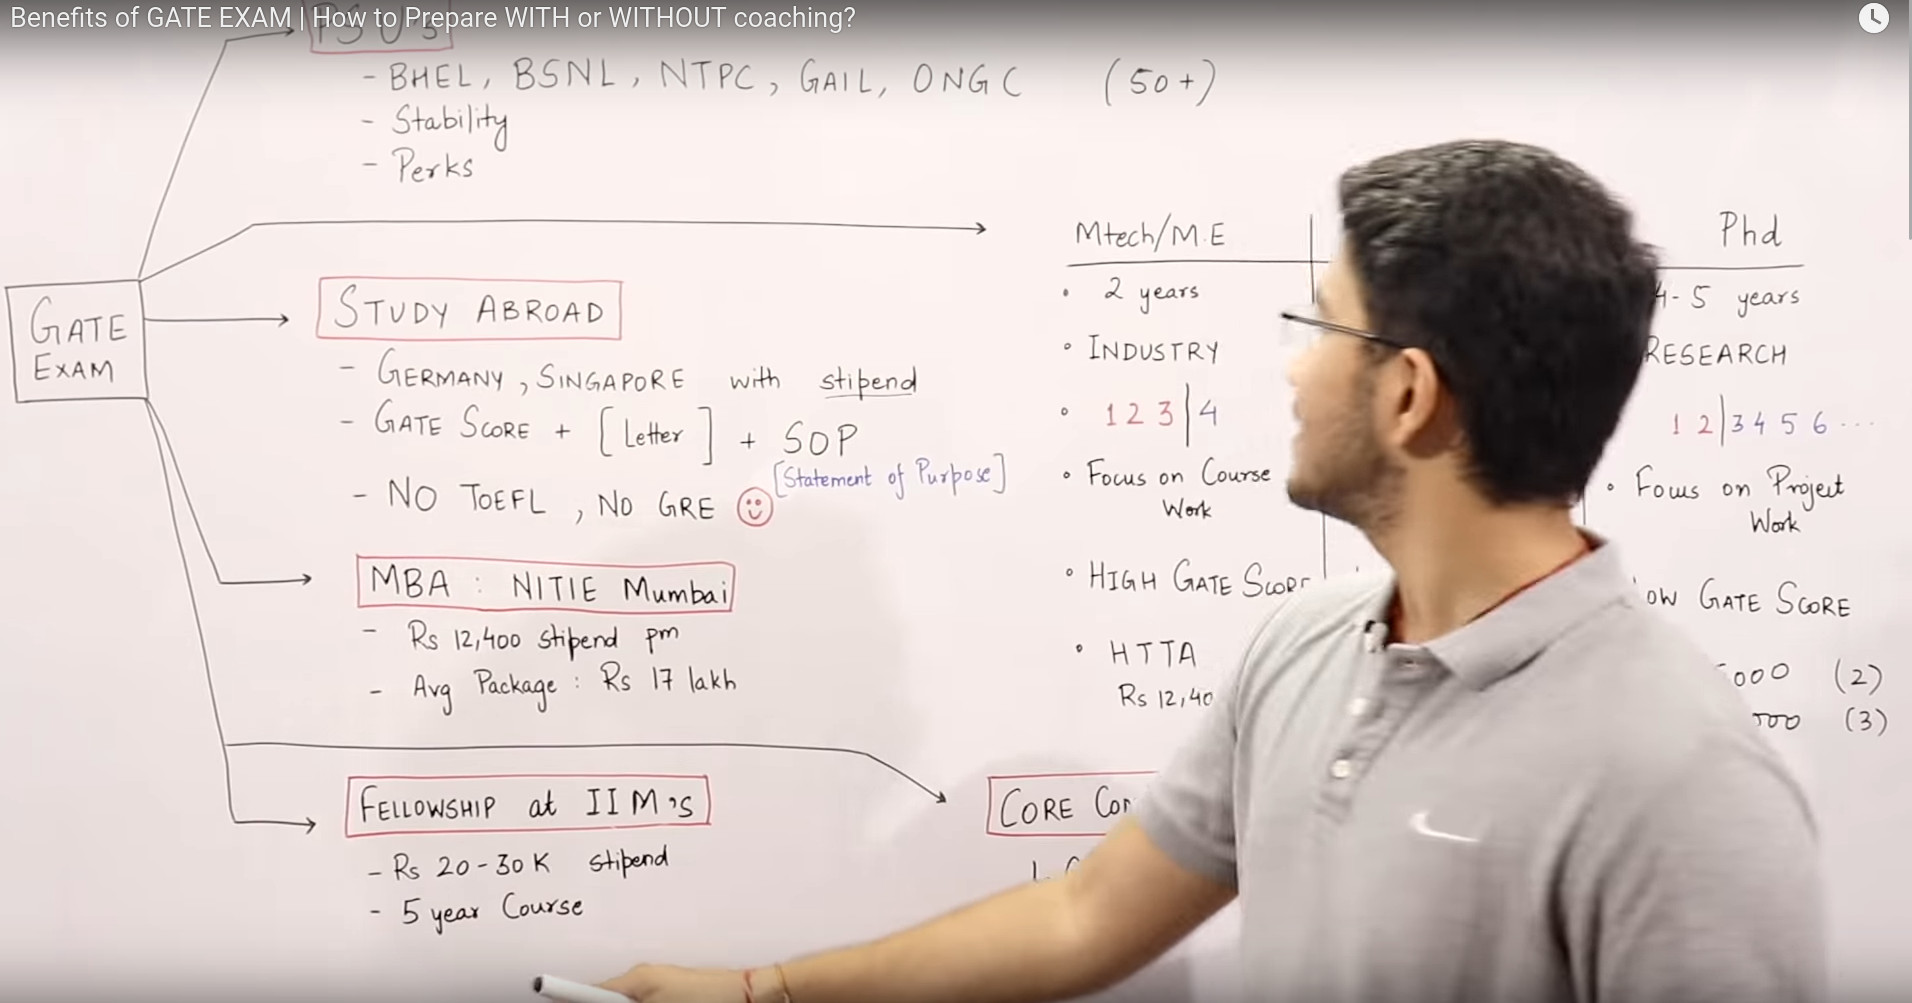 Benefits of GATE EXAM | How to Prepare WITH or WITHOUT coaching?
PSU's
- BHEL, BSNL, NTPC, GAIL, ONGC (50+)
- Stability
- Perks
GATE
EXAM
STUDY ABROAD
- GERMANY, SINGAPORE with stipend
- GATE SCORE + [Letter] + SOP
[Statement of Purpose]
- NO TOEFL, NO GRE
MBA : NITIE Mumbai
- Rs 12,400 stipend pm
- Avg Package : Rs 17 lakh
FELLOWSHIP at IIM's
- Rs 20-30K stipend
- 5 year Course
Mtech/M.E
• 2 years
• INDUSTRY
• 1 2 3 | 4
• Focus on Course
Work
• HIGH GATE SCORE
• HTTA
Rs 12,40
Phd
4-5 years
RESEARCH
1 2 | 3 4 5 6 ...
• Focus on Project
Work
OW GATE SCORE
000 (2)
000 (3)
CORE